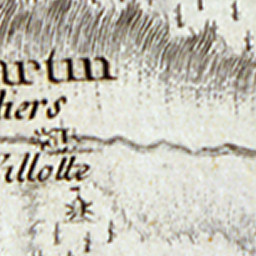 artin
hers
Villotte